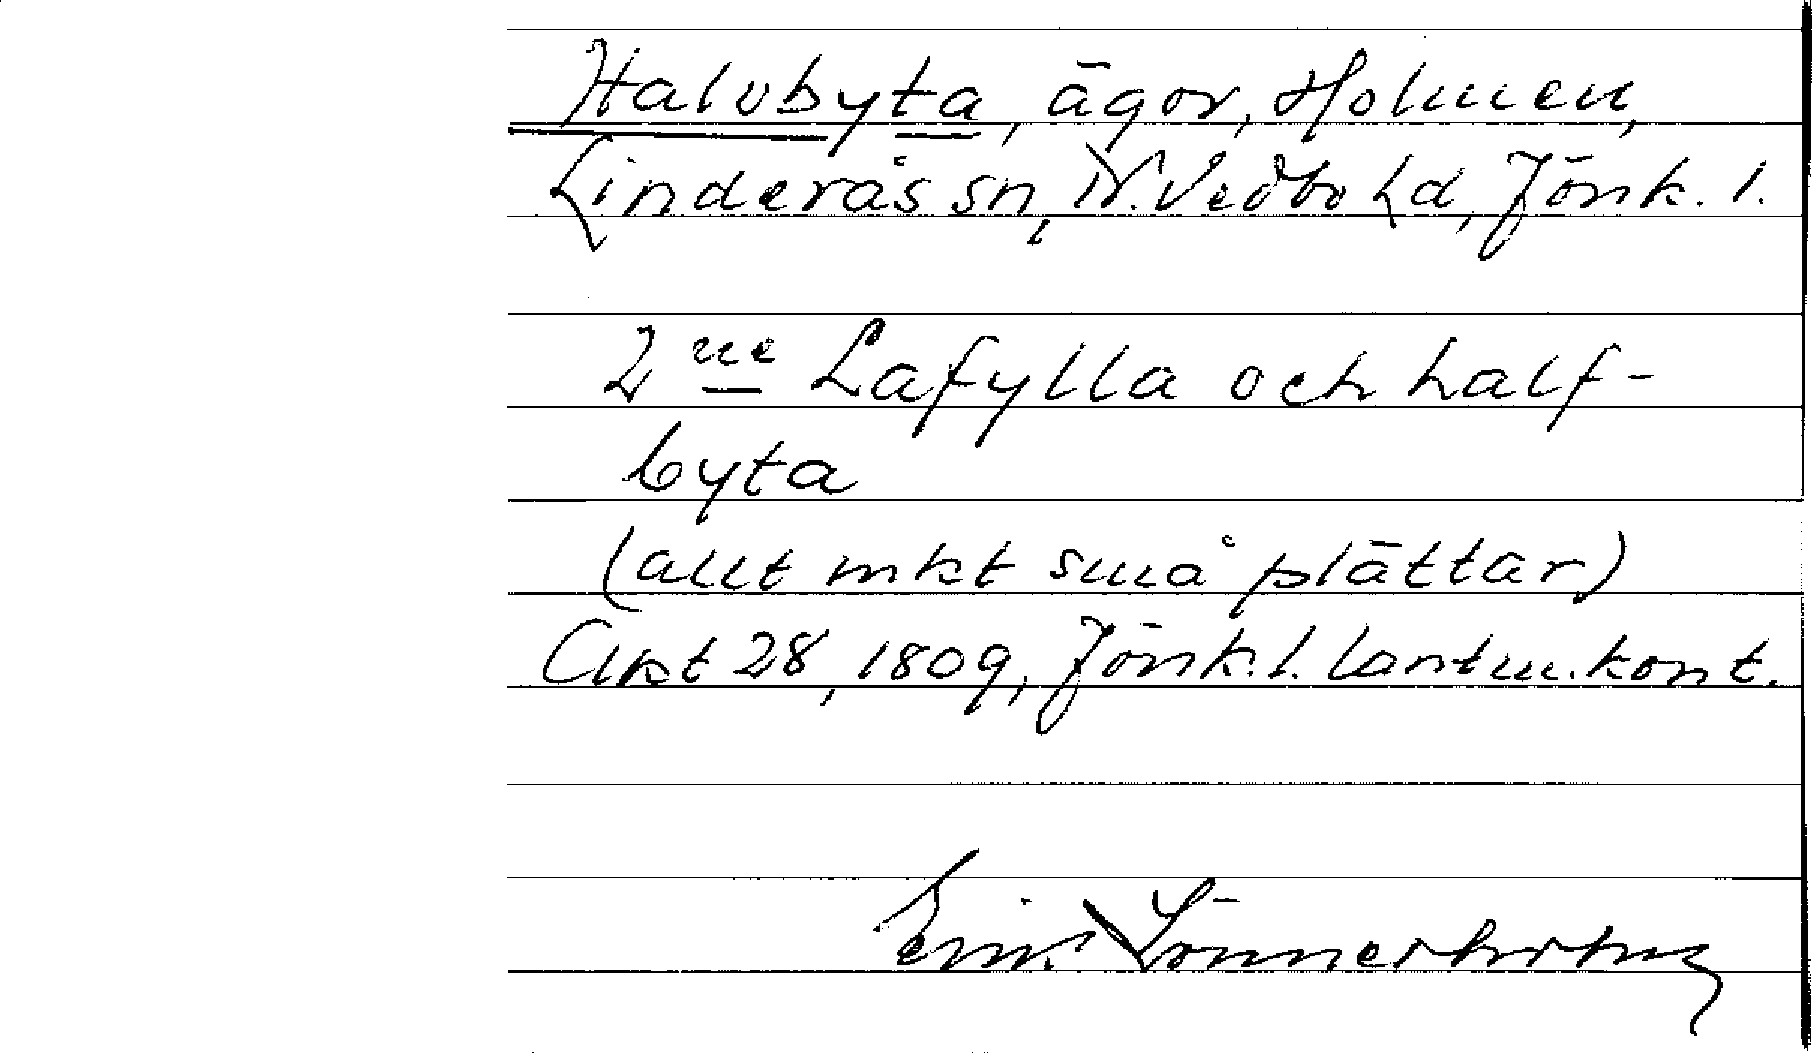 Halvbyta, ägor, Holmen,
Linderås sn, N. Vedbo hd, Jönk. l.
2 ne Lafylla och half-
byta
(allt mkt små plättar)
Akt 28, 1809, Jönk. l. lantm. kont.
Einar Lönnerholm